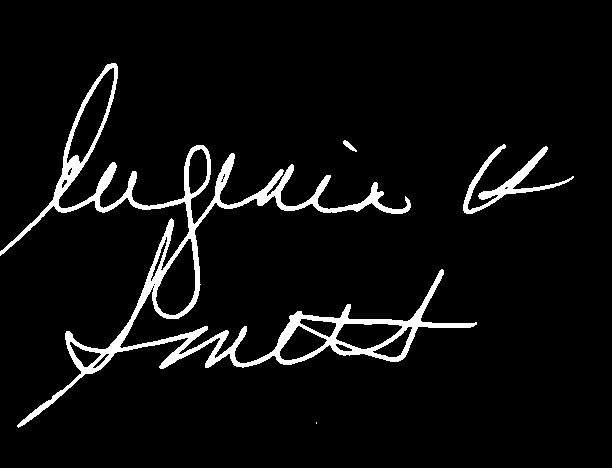 Eugenia
Smith